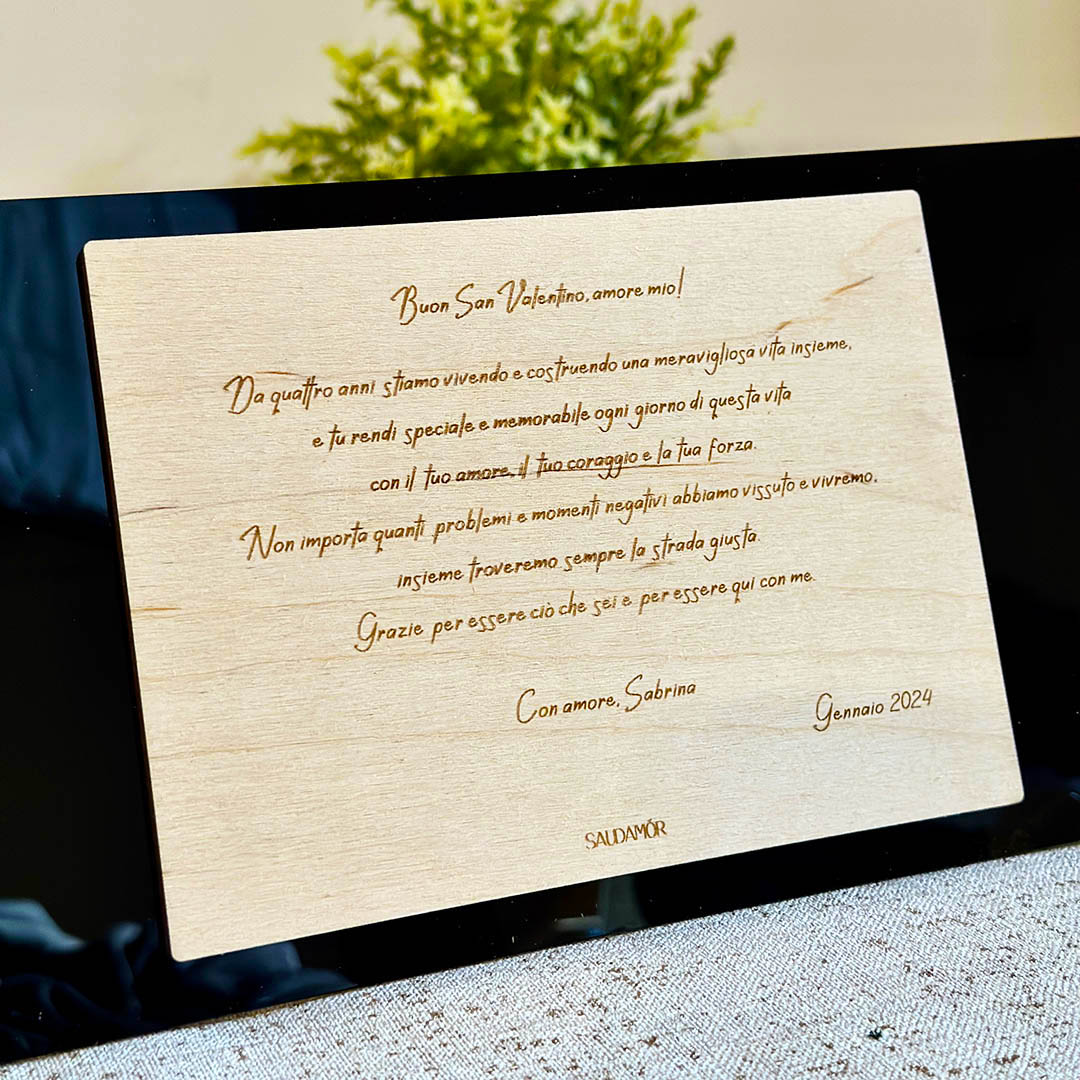 Buon San Valentino, amore mio!
Da quattro anni stiamo vivendo e costruendo una meravigliosa vita insieme,
e tu rendi speciale e memorabile ogni giorno di questa vita
con il tuo amore, il tuo coraggio e la tua forza.
Non importa quanti problemi e momenti negativi abbiamo vissuto e vivremo,
insieme troveremo sempre la strada giusta.
Grazie per essere ciò che sei e per essere qui con me.
Con amore, Sabrina
Gennaio 2024
SAUDAMŌR